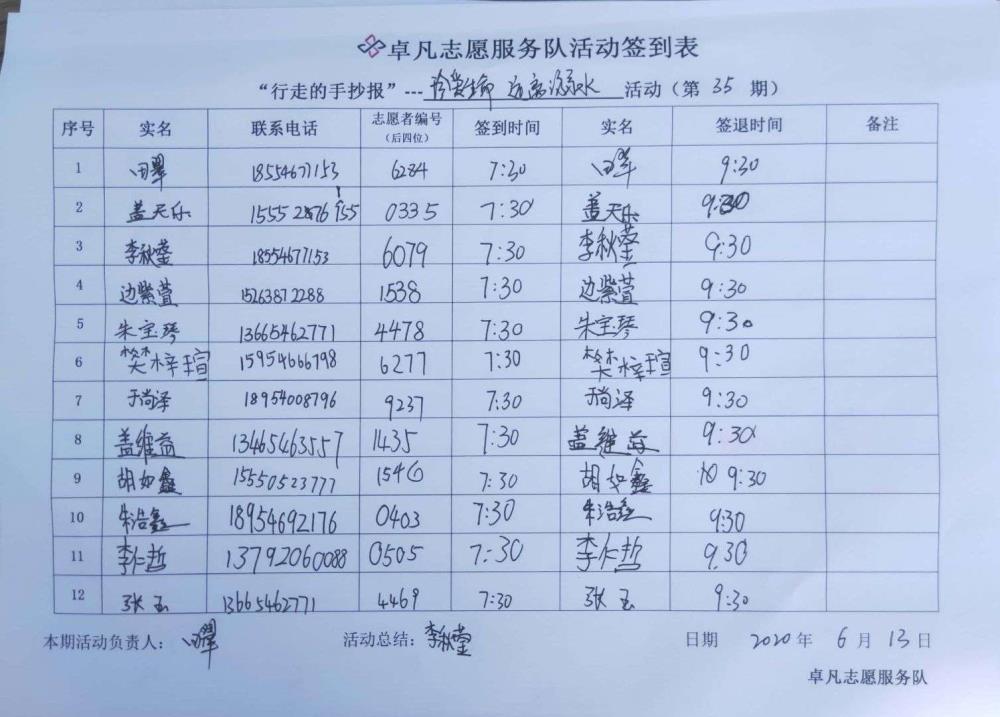 卓凡志愿服务队活动签到表
“行走的手抄报”---珍爱生命 远离溺水 活动（第 35 期）
序号 实名 联系电话 志愿者编号（后四位） 签到时间 实名 签退时间 备注
1 田翠 18554677153 6284 7:30 田翠 9:30
2 盖天乐 0335 7:30 盖天乐 9:30
3 李秋莹 18554677153 6079 7:30 李秋莹 9:30
4 边紫萱 15263872288 1538 7:30 边紫萱 9:30
5 朱宝琴 13665462771 4478 7:30 朱宝琴 9:30
6 樊梓瑄 15954666798 6277 7:30 樊梓瑄 9:30
7 于尚泽 18954008796 9237 7:30 于尚泽 9:30
8 盖维益 13465463557 1435 7:30 盖维益 9:30
9 胡如鑫 15550523777 1546 7:30 胡如鑫 9:30
10 朱浩鑫 18954692176 0403 7:30 朱浩鑫 9:30
11 李仁哲 13792060088 0505 7:30 李仁哲 9:30
12 张玉 13665462771 4469 7:30 张玉 9:30
本期活动负责人：田翠 活动总结：李秋莹 日期 2020 年 6 月 13 日
卓凡志愿服务队